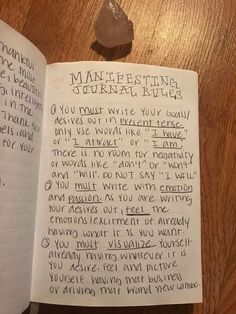 thankful
the most
e, beautiful
, intelligent
in the
Thank you
els, and
for your
MANIFESTING
JOURNAL RULES
① YOU must WRITE YOUR goals/
desires out in present tense-
only use words like "I have"
or "I attract" or "I am."
There is no room for negativity
or words like "don't" or "won't"
and "will". DO NOT SAY "I WILL"
② YOU must WRITE with emotion
and passion. As you are writing
your desires out, feel the
emotions/excitment of already
having what it is you want.
③ YOU must visualize yourself
already having whatever it is
you desire. Feel and picture
yourself having that business
or driving that brand new Lambo.